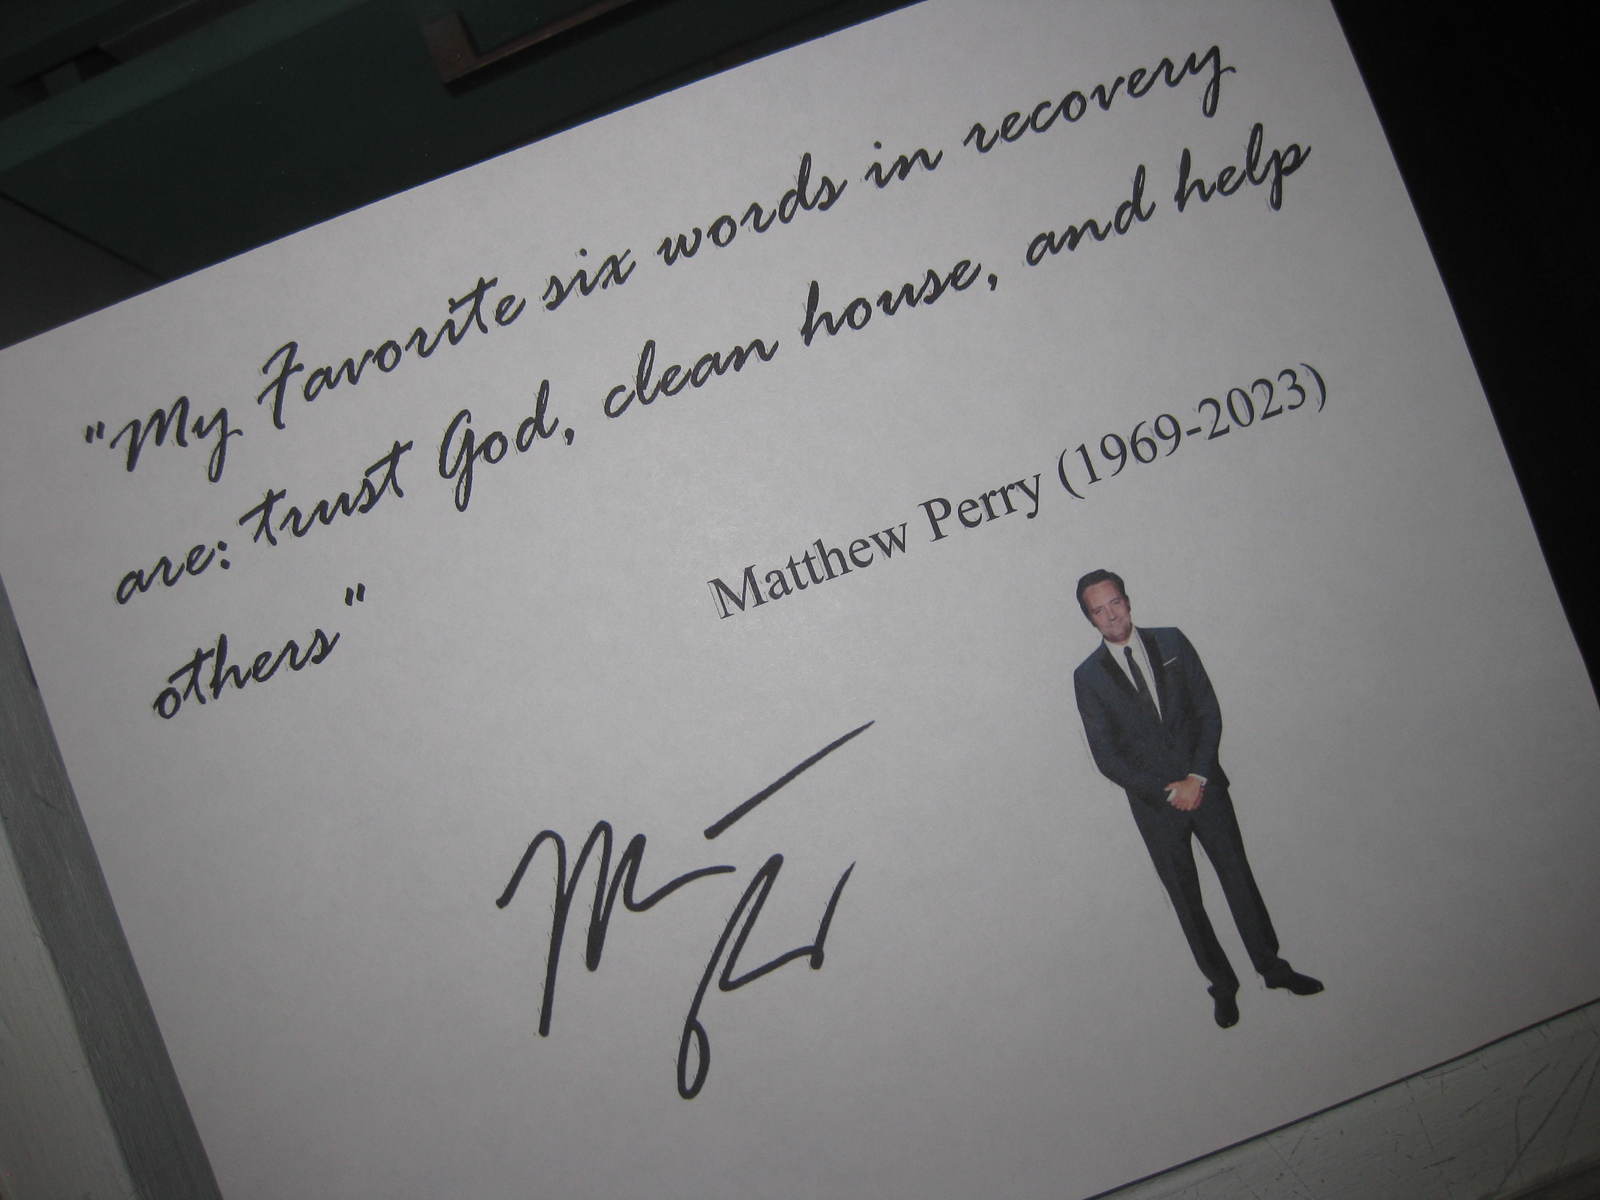 "My Favorite six words in recovery
are: trust God, clean house, and help
others"
Matthew Perry (1969-2023)